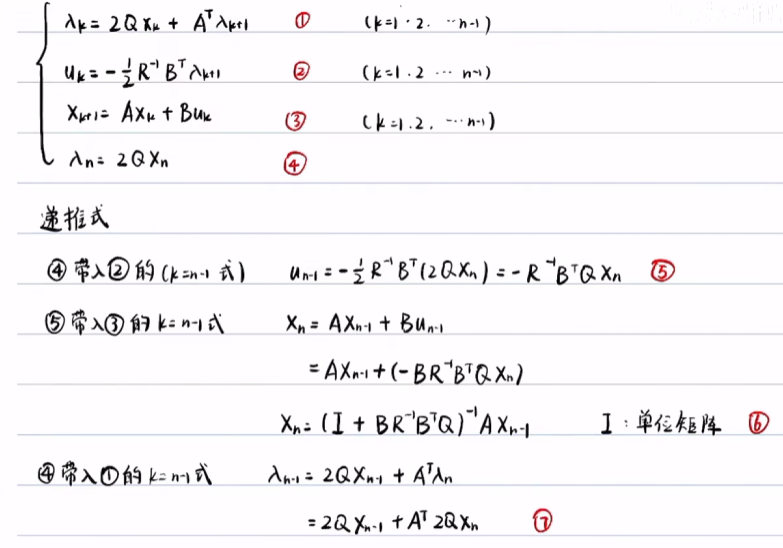 λₖ = 2Qxₖ + Aᵀλₖ₊₁ ① (k=1·2. ⋯n-1)
uₖ = -½R⁻¹Bᵀλₖ₊₁ ② (k=1.2 ⋯ n-1)
xₖ₊₁ = Axₖ + Buₖ ③ (k=1.2. ⋯n-1)
λₙ = 2Qxₙ ④
递推式
④带入②的(k=n-1 式) uₙ₋₁ = -½R⁻¹Bᵀ(2Qxₙ) = -R⁻¹BᵀQxₙ ⑤
⑤带入③的k=n-1式 xₙ = Axₙ₋₁ + Buₙ₋₁
= Axₙ₋₁ + (-BR⁻¹BᵀQxₙ)
xₙ = (I + BR⁻¹BᵀQ)⁻¹Axₙ₋₁ I:单位矩阵 ⑥
④带入①的k=n-1式 λₙ₋₁ = 2Qxₙ₋₁ + Aᵀλₙ
= 2Qxₙ₋₁ + Aᵀ2Qxₙ ⑦